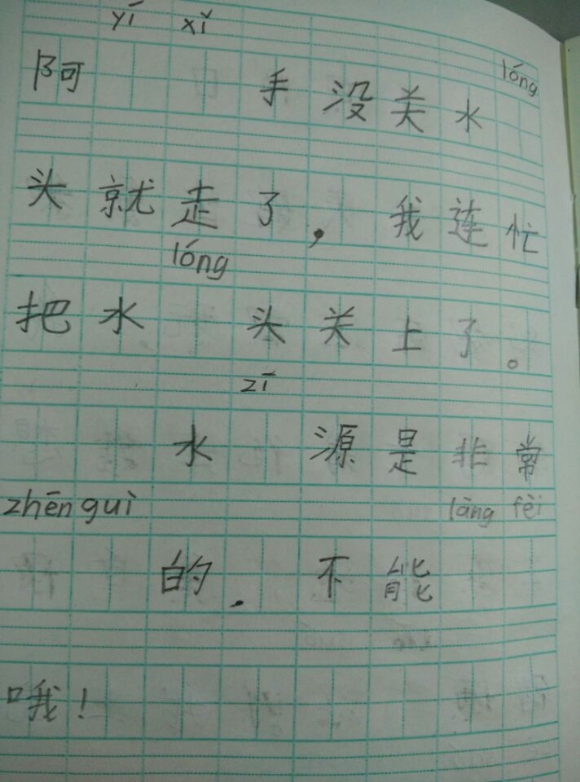 yí xǐ lóng
阿 手没关水
头就走了，我连忙
lóng
把水 头关上了。
zī
水 源是非常
zhēn guì làng fèi
的．不能
哦！